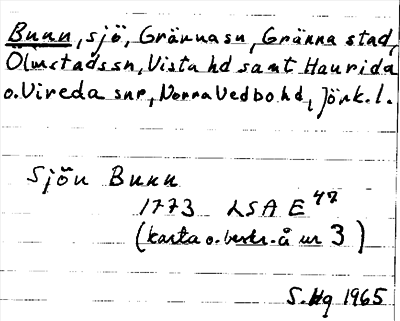 Bunn, sjö, Grännasn, Gränna stad,
Ölmstadssn, Vista hd samt Haurida
o. Vireda snr, Norra Vedbo hd, Jönk. l.
Sjön Bunn
1773 LSA E 47
(karta o. beskr. å nr 3)
S. Hg 1965